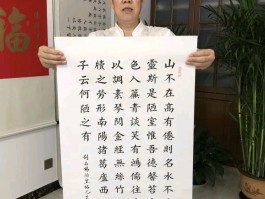 山不在高有僊則名水不
靈斯是陋室惟吾德馨苔
色入簾青談笑有鴻儒往
以調素琴閱金經無絲竹
牘之勞形南陽諸葛廬西
子云何陋之有
劉禹錫陋室銘
福